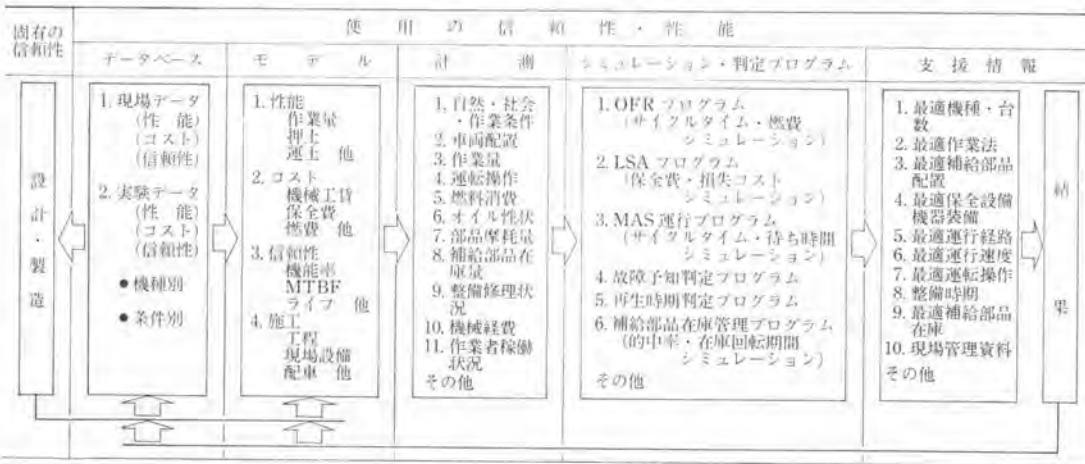 固有の
信頼性
使用の信頼性・性能
データベース
モデル
計測
シミュレーション・判定プログラム
支援情報
設計・製造
1. 現場データ
(性能)
(コスト)
(信頼性)
2. 実験データ
(性能)
(コスト)
(信頼性)
●機種別
●条件別
1. 性能
作業量
押土
運土 他
2. コスト
機械工賃
保全費
燃費 他
3. 信頼性
機能率
MTBF
ライフ 他
4. 施工
工程
現場設備
配車 他
1. 自然・社会
・作業条件
2. 車両配置
3. 作業量
4. 運転操作
5. 燃料消費
6. オイル性状
7. 部品摩耗量
8. 補給部品在
庫量
9. 整備修理状
況
10. 機械経費
11. 作業者稼働
状況
その他
1. OFR プログラム
(サイクルタイム・燃費
シミュレーション)
2. LSA プログラム
(保全費・損失コスト
シミュレーション)
3. MAS運行プログラム
(サイクルタイム・待ち時間
シミュレーション)
4. 故障予知判定プログラム
5. 再生時期判定プログラム
6. 補給部品在庫管理プログラム
(的中率・在庫回転期間
シミュレーション)
その他
1. 最適機種・台
数
2. 最適作業法
3. 最適補給部品
配置
4. 最適保全設備
機器装備
5. 最適運行経路
6. 最適運行速度
7. 最適運転操作
8. 整備時期
9. 最適補給部品
在庫
10. 現場管理資料
その他
結果